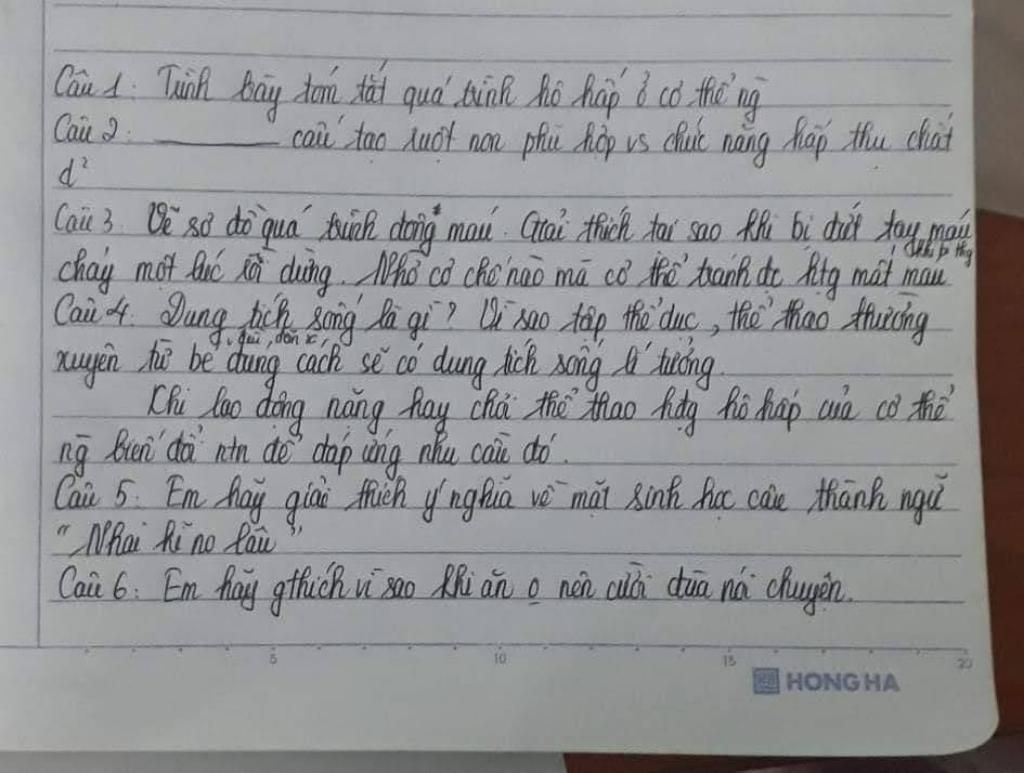 Câu 1: Trình bày tóm tắt quá trình hô hấp ở cơ thể ng
Câu 2: ________ cấu tạo ruột non phù hợp vs chức năng hấp thu chất
d²
Câu 3. Vẽ sơ đồ quá trình đông máu. Giải thích tại sao khi bị đứt tay máu
chảy một lúc rồi dừng. Nhờ cơ chế nào mà cơ thể tránh đc htg mất máu
khi bị thg
Câu 4. Dung tích sống là gì? Vì sao tập thể dục, thể thao thường
xuyên từ bé đúng cách sẽ có dung tích sống lí tưởng.
Khi lao động nặng hay chơi thể thao hđg hô hấp của cơ thể
ng biến đổi ntn để đáp ứng nhu cầu đó.
Câu 5: Em hãy giải thích ý nghĩa về mặt sinh học câu thành ngữ
"Nhai kĩ no lâu"
Câu 6: Em hãy gthích vì sao khi ăn o nên cười đùa nói chuyện.
5 10 15 20
HONG HA